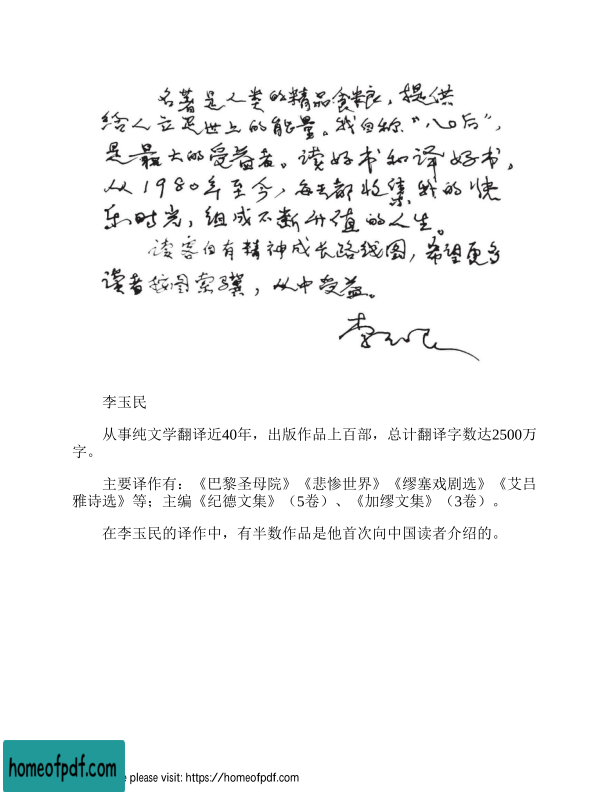 名著是人类的精品食粮，提供
给人立足世上的能量。我自称“八〇后”，
是最大的受益者。读好书和译好书，
从1980年至今，每天都收集我的快
乐时光，组成不断升值的人生。
读客自有精神成长路线图，希望更多
读者按图索骥，从中受益。
李玉民
李玉民
从事纯文学翻译近40年，出版作品上百部，总计翻译字数达2500万
字。
主要译作有：《巴黎圣母院》《悲惨世界》《缪塞戏剧选》《艾吕
雅诗选》等；主编《纪德文集》（5卷）、《加缪文集》（3卷）。
在李玉民的译作中，有半数作品是他首次向中国读者介绍的。
homeofpdf.com
please visit: https://homeofpdf.com